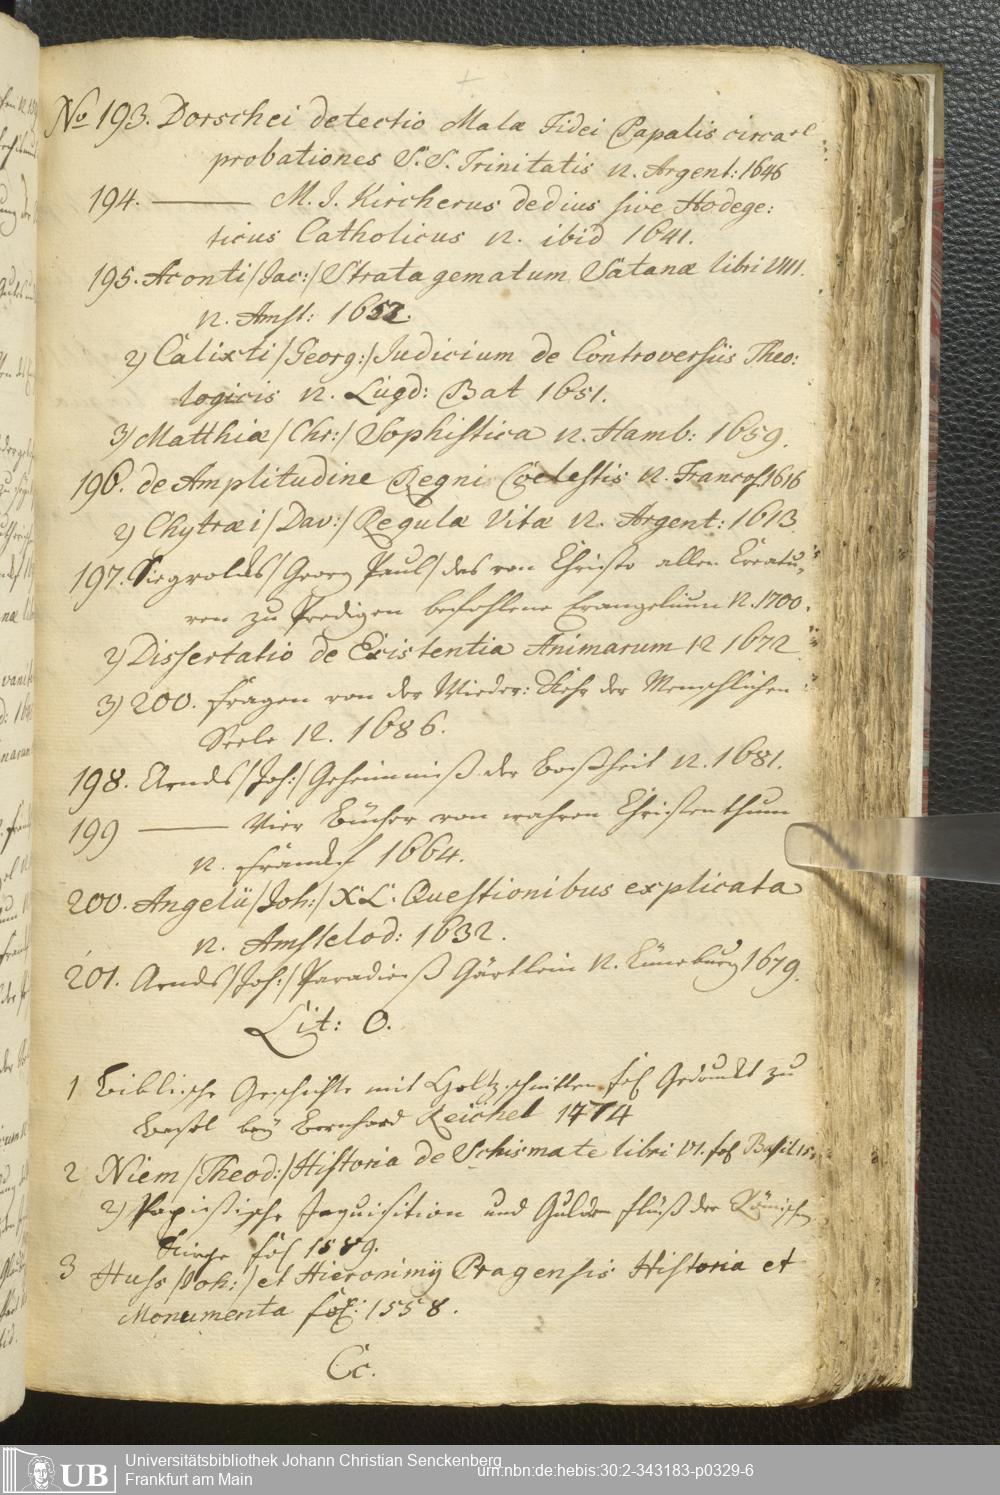 No 193. Dorschei detectio Malæ Fidei Papalis circa
probationes S.S. Trinitatis 12. Argent: 1646
194. ——— M. J. Kircherus dedius sive Hodege:
ticus Catholicus 12. ibid 1641.
195. Aconti /Jac:/ Stratagematum Satanæ libri VIII.
12. Amst: 1652.
2) Calixti /Georg:/ Judicium de Controversiis Theo:
logicis 12. Lugd: Bat 1651.
3) Matthiæ /Chr:/ Sophistica 12. Hamb: 1659.
196. de Amplitudine Regni Coelestis 12. Francof. 1616
2) Chytræi /Dav:/ Regulæ Vitæ 12. Argent: 1613
197. Siegvolds /Georg Paul/ das von Christo allen Creatu,
ren zu Predigen befohlene Evangelium 12. 1700.
2) Dissertatio de Existentia Animarum 12 1672
3) 200. Fragen von der Wieder: Kehr der Menschlichen
Seele 12. 1686.
198. Arnds /Joh:/ Geheimniß der Boßheit 12. 1681.
199 ——— Vier Bücher von wahren Christenthum
12. 1664.
200. Angelii /Joh:/ XL. Questionibus explicata
12. Amstelod: 1632.
201. Arnds /Joh:/ Paradieß Gärtlein 12. Lüneburg 1679.
Lit: O.
1 Biblische Geschichte mit Holtzschnitten fol Gedruckt zu
Basel bey Bernhard Reichel 1474
2 Niem /Theod:/ Historia de Schismate libri VI. fol Basil 15
2) Papistische Inquisition und Gulden Fluß der Römischen
Kirche fol 1589.
3 Huss /Joh:/ et Hieronimij Pragensis Historia et
Monumenta fol: 1558.
Cc.
UB
Universitätsbibliothek Johann Christian Senckenberg
Frankfurt am Main
urn:nbn:de:hebis:30:2-343183-p0329-6